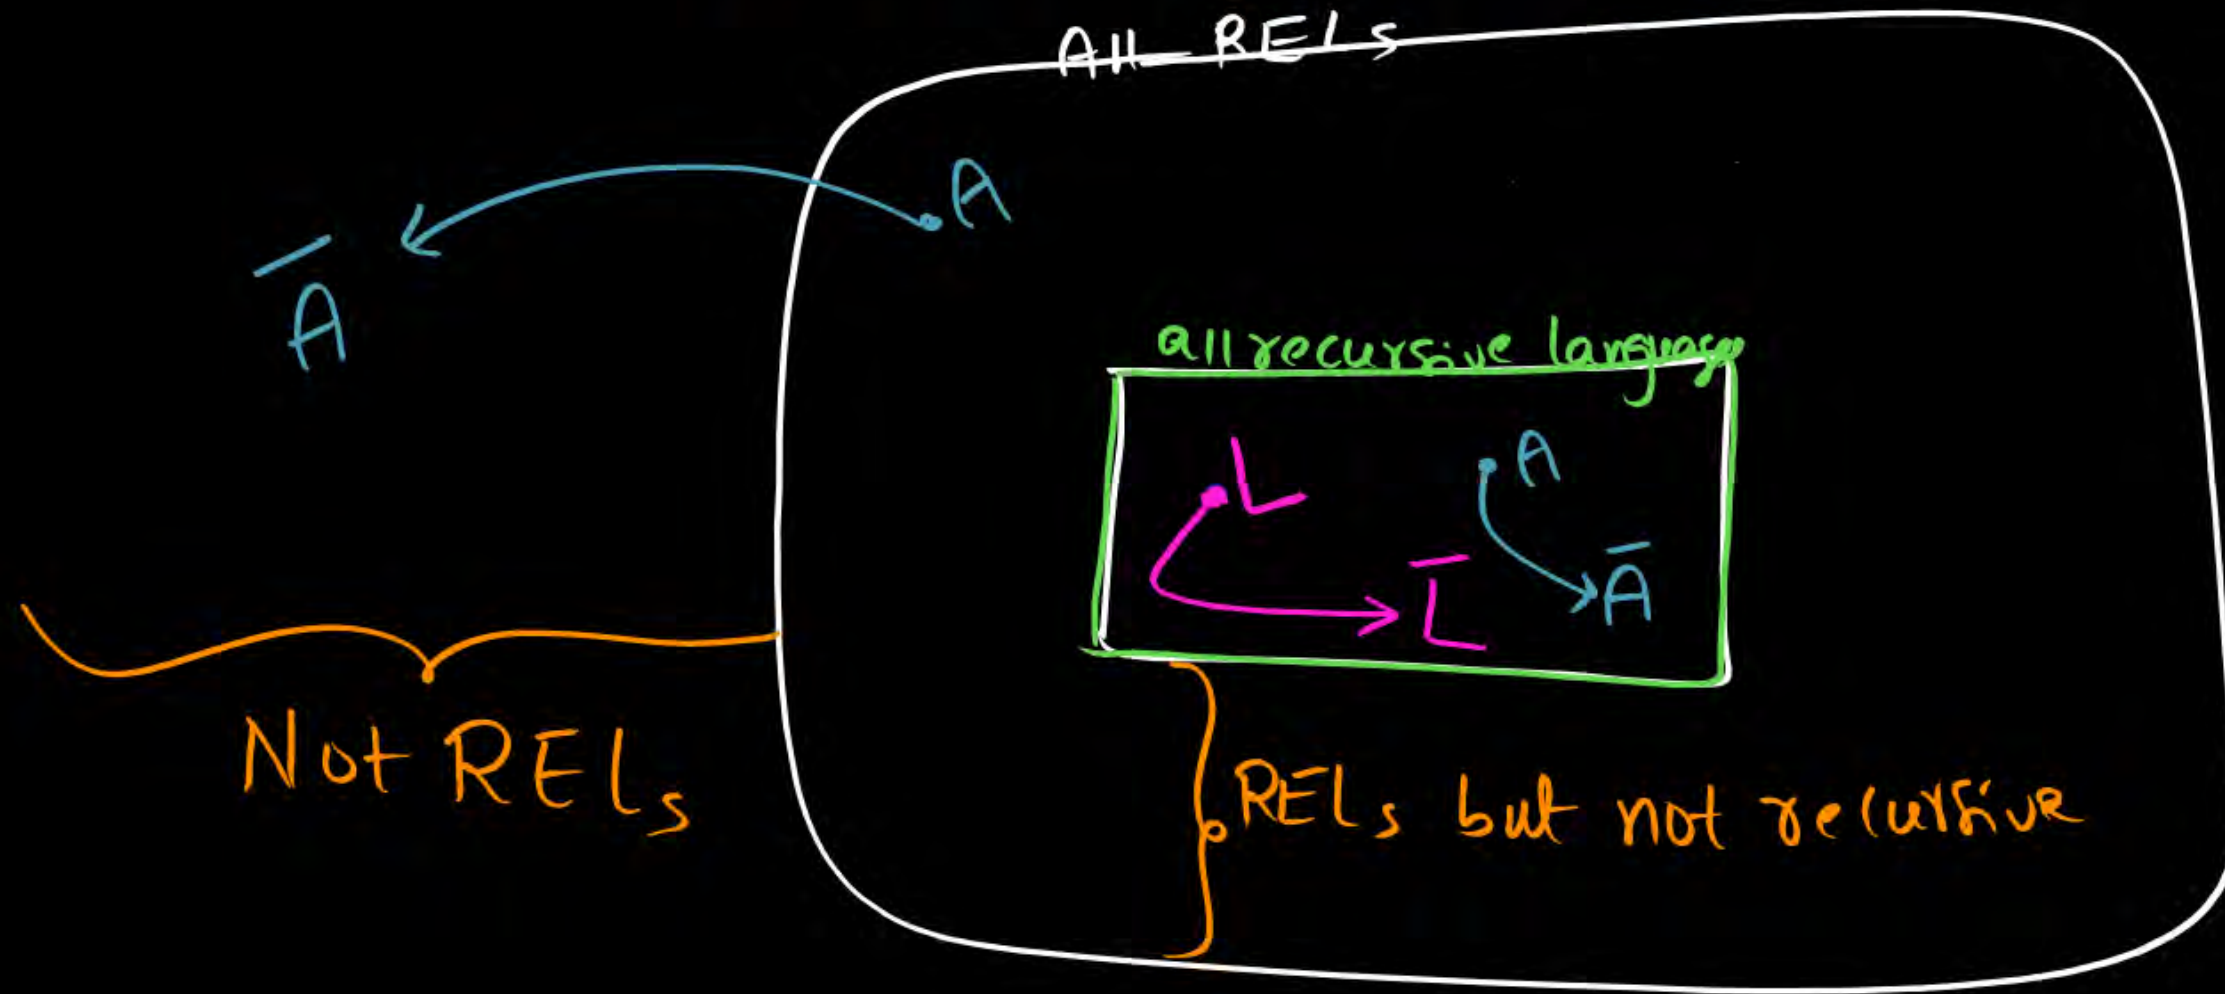 All RELs
A
A̅
all recursive language
L
A
L̅
A̅
Not RELs
RELs but not recursive